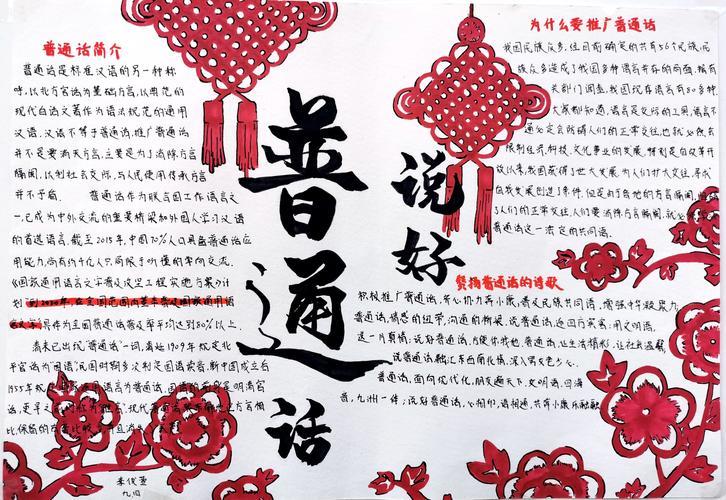 普通话简介
普通话是标准汉语的另一种称
呼,以北方官话为基础方言,以典范的
现代白话文著作为语法规范的通用
汉语。汉语不等于普通话,推广普通话
并不是要消灭方言,主要是为了消除方言
隔阂,以利社会交际,与人民使用传承方言
并不矛盾。 普通话作为联合国工作语言之
一,已成为中外交流的重要桥梁和外国人学习汉语
的首选语言。截至2015年,中国70%人口具备普通话应
用能力,尚有约4亿人只局限于听懂的单向交流。
《国家通用语言文字普及攻坚工程实施方案》计
划到2020年,在全国范围内基本普及国家通用语
言文字,具体为全国普通话普及率平均达到80%以上。
清末已出现"普通话"一词,清廷1909年规定北
平官话为"国语",民国时期多次制定国语读音,新中国成立后
1955年规定
普通话
说好
为什么要推广普通话
我国民族众多,但目前确定的共有56个民族,民
族众多造成了我国多种语言并存的局面,据有
关部门调查,我国现存语言有80多种。
大家都知道,语言是交际的工具,语言不
通必定会防碍人们的正常交往,也就必然会
限制经济、科技、文化事业的发展,特别是自改革开
放以来,我国获得了巨大发展,为人们扩大交往,寻求
自我发展创造了条件,但是由于各地的方言隔阂,
了人们的正常交往,人们要消除方言隔阂,就必
普通话这一法定的共同语。
赞扬普通话的诗歌
积极推广普通话,齐心协力奔小康,普及民族共同语,增强中华凝聚力
普通话,情感的纽带,沟通的桥梁,说普通话,迎四方宾客;用文明语,
送一片真情;说好普通话,方便你我他,普通话,让生活精彩,让社会温馨,
说普通话融汇东西南北情,深入男女老少心。
普通话,面向现代化,朋友遍天下,文明语,四海
音,九州一体;说好普通话,心相印,语相通,共奔小康乐融融
九四